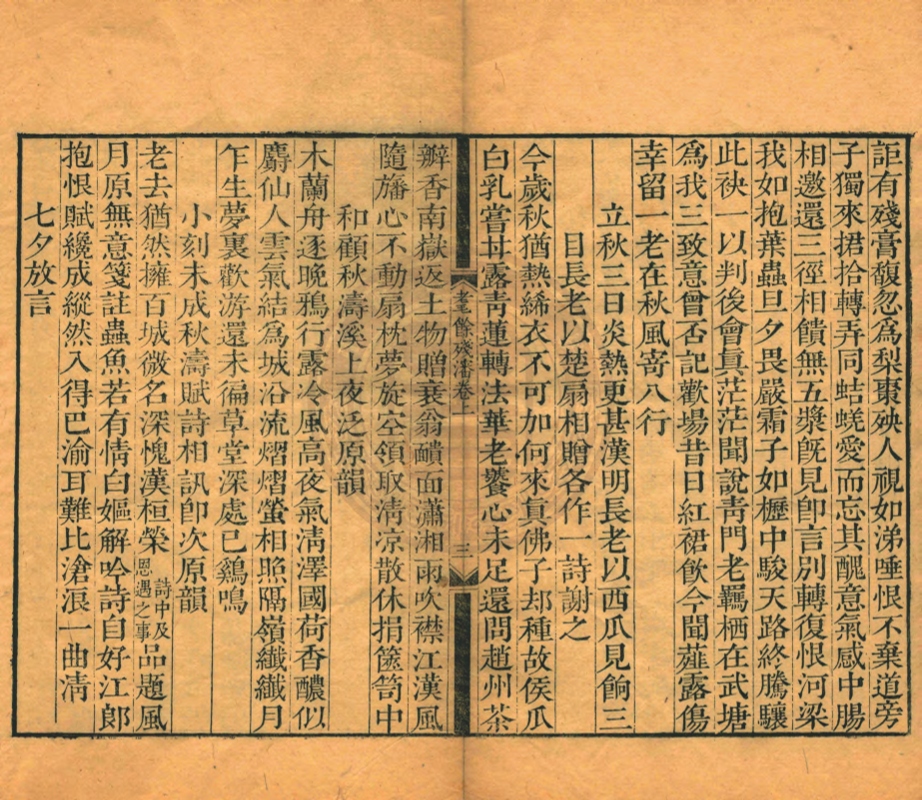 詎有殘膏馥忽為梨棗殃人視如涕唾恨不棄道旁
子獨來捃拾轉弄同蛣蜣愛而忘其醜意氣感中腸
相邀還三徑相饋無五漿旣見卽言別轉復恨河梁
我如抱華蟲旦夕畏嚴霜子如櫪中駿天路終騰驤
此袂一以判後會眞茫茫聞說靑門老羈栖在武塘
爲我三致意曾否記歡場昔日紅裙飲今聞薤露傷
幸留一老在秋風寄八行
立秋三日炎熱更甚漢明長老以西瓜見餉三
日長老以楚扇相贈各作一詩謝之
今歲秋猶熱絺衣不可加何來眞佛子却種故侯瓜
白乳嘗甘露靑蓮轉法華老饕心未足還問趙州茶
老餘殘瀋卷上
三
瓣香南嶽返土物贈衰翁靧面瀟湘雨吹襟江漢風
隨旛心不動扇枕夢旋空領取淸凉散休捐篋笥中
和顧秋濤溪上夜泛原韻
木蘭舟逐晚鴉行露冷風高夜氣淸澤國荷香醲似
麝仙人雲氣結爲城沿流熠熠螢相照隔嶺纖纖月
乍生夢裏歡游還未徧草堂深處已鷄鳴
小刻未成秋濤賦詩相訊卽次原韻
老去猶然擁百城微名深愧漢桓榮詩中及恩遇之事品題風
月原無意箋註蟲魚若有情白嫗解吟詩自好江郎
抱恨賦纔成縱然入得巴渝耳難比滄浪一曲淸
七夕放言